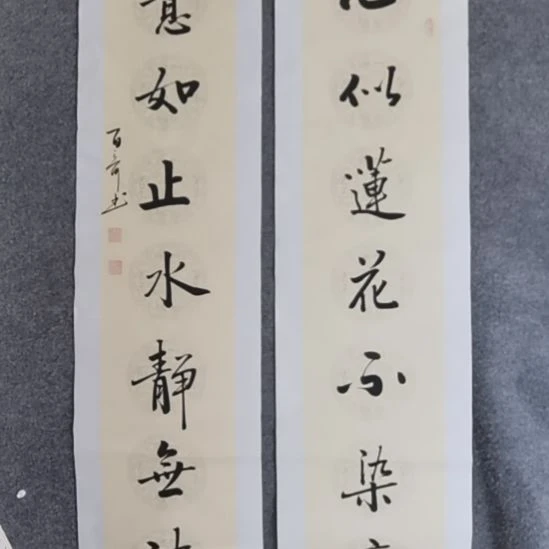 似蓮花不染
意如止水靜無
百奇书